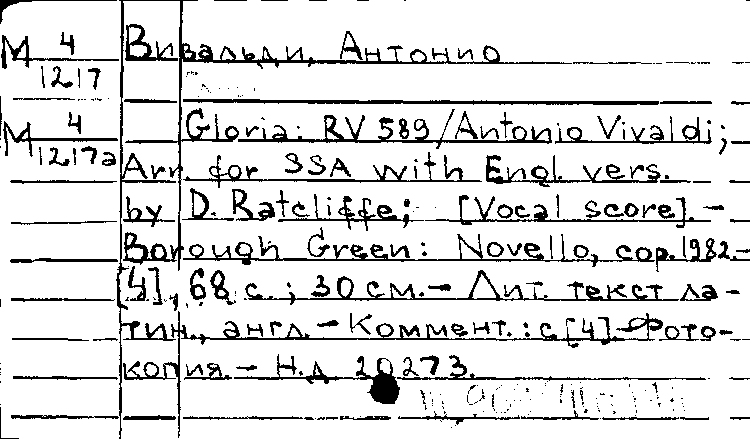 М 4/1217 Вивальди, Антонио
М 4/1217а Gloria: RV 589/Antonio Vivaldi;
Arr. for SSA with Engl. vers.
by D. Ratcliffe; [Vocal score].-
Borough Green: Novello, cop. 1982.-
[4], 68 с.; 30 см.- Лит. текст ла-
тин., англ.- Коммент.: с [4].-Фото-
копия.- Н.д 20273.